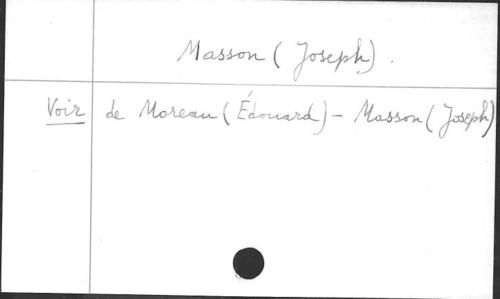 Masson (Joseph).
Voir de Moreau (Édouard) - Masson (Joseph)